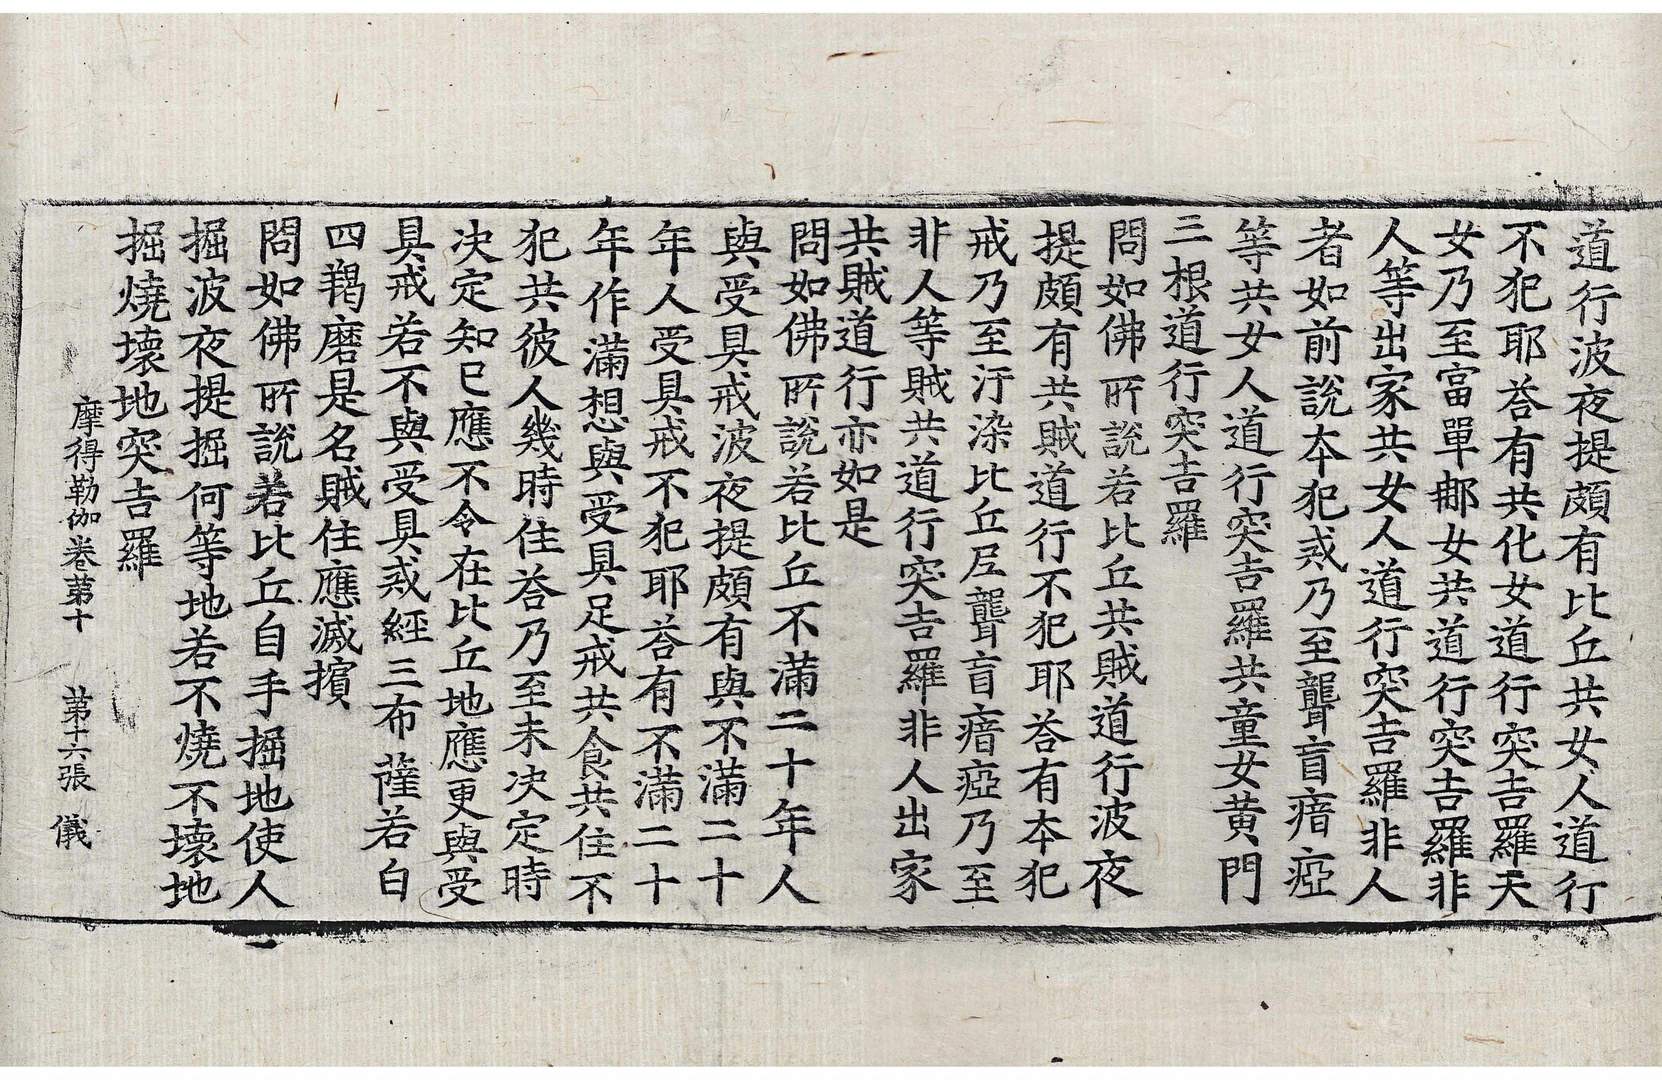 道行波夜提頗有比丘共女人道行
不犯耶荅有共化女道行突吉羅天
女乃至富單那女共道行突吉羅非
人等出家共女人道行突吉羅非人
者如前說本犯戒乃至聾盲瘖瘂
等共女人道行突吉羅共童女黃門
二根道行突吉羅
問如佛所說若比丘共賊道行波夜
提頗有共賊道行不犯耶荅有本犯
戒乃至汙染比丘尼聾盲瘖瘂乃至
非人等賊共道行突吉羅非人出家
共賊道行亦如是
問如佛所說若比丘不滿二十年人
與受具戒波夜提頗有與不滿二十
年人受具戒不犯耶荅有不滿二十
年作滿想與受具足戒共食共住不
犯共彼人幾時住荅乃至未決定時
決定知已應不令在比丘地應更與受
具戒若不與受具戒經三布薩若白
四羯磨是名賊住應滅擯
問如佛所說若比丘自手掘地使人
掘波夜提掘何等地若不燒不壞地
掘燒壞地突吉羅
摩得勒伽卷第十 第十六張 儀